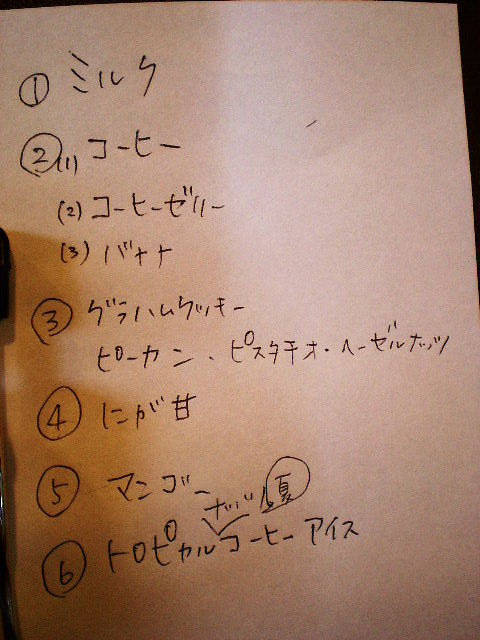 ① ミルク
② (1) コーヒー
(2) コーヒーゼリー
(3) バナナ
③ グラハムクッキー
ピーカン、ピスタチオ・ヘーゼルナッツ
④ にが甘
⑤ マンゴー
夏
⑥ トロピカルコーヒーアイス